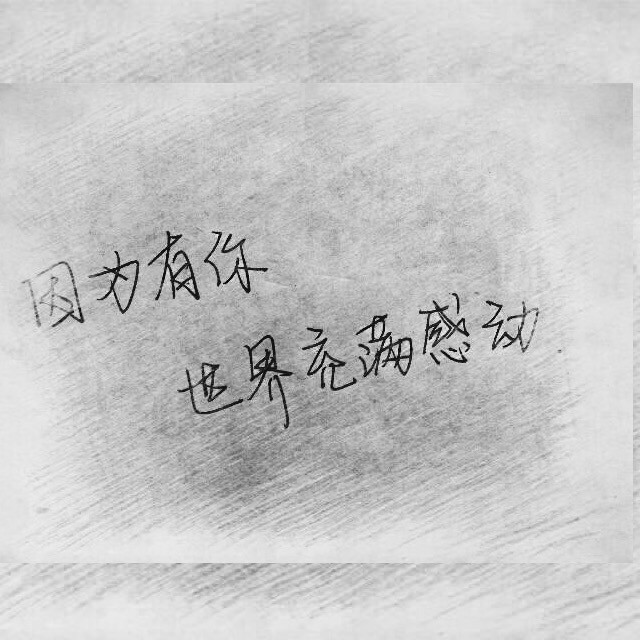 因为有你
世界充满感动